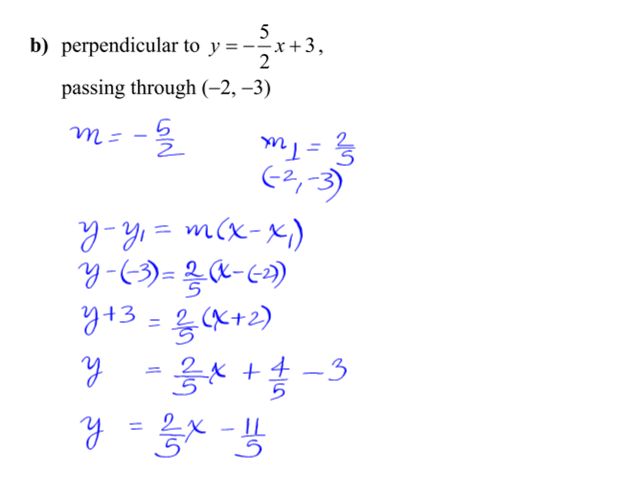 b) perpendicular to y = -5/2 x + 3,
passing through (-2, -3)
m = -5/2
m⊥ = 2/5
(-2, -3)
y - y₁ = m(x - x₁)
y - (-3) = 2/5 (x - (-2))
y + 3 = 2/5 (x + 2)
y = 2/5 x + 4/5 - 3
y = 2/5 x - 11/5